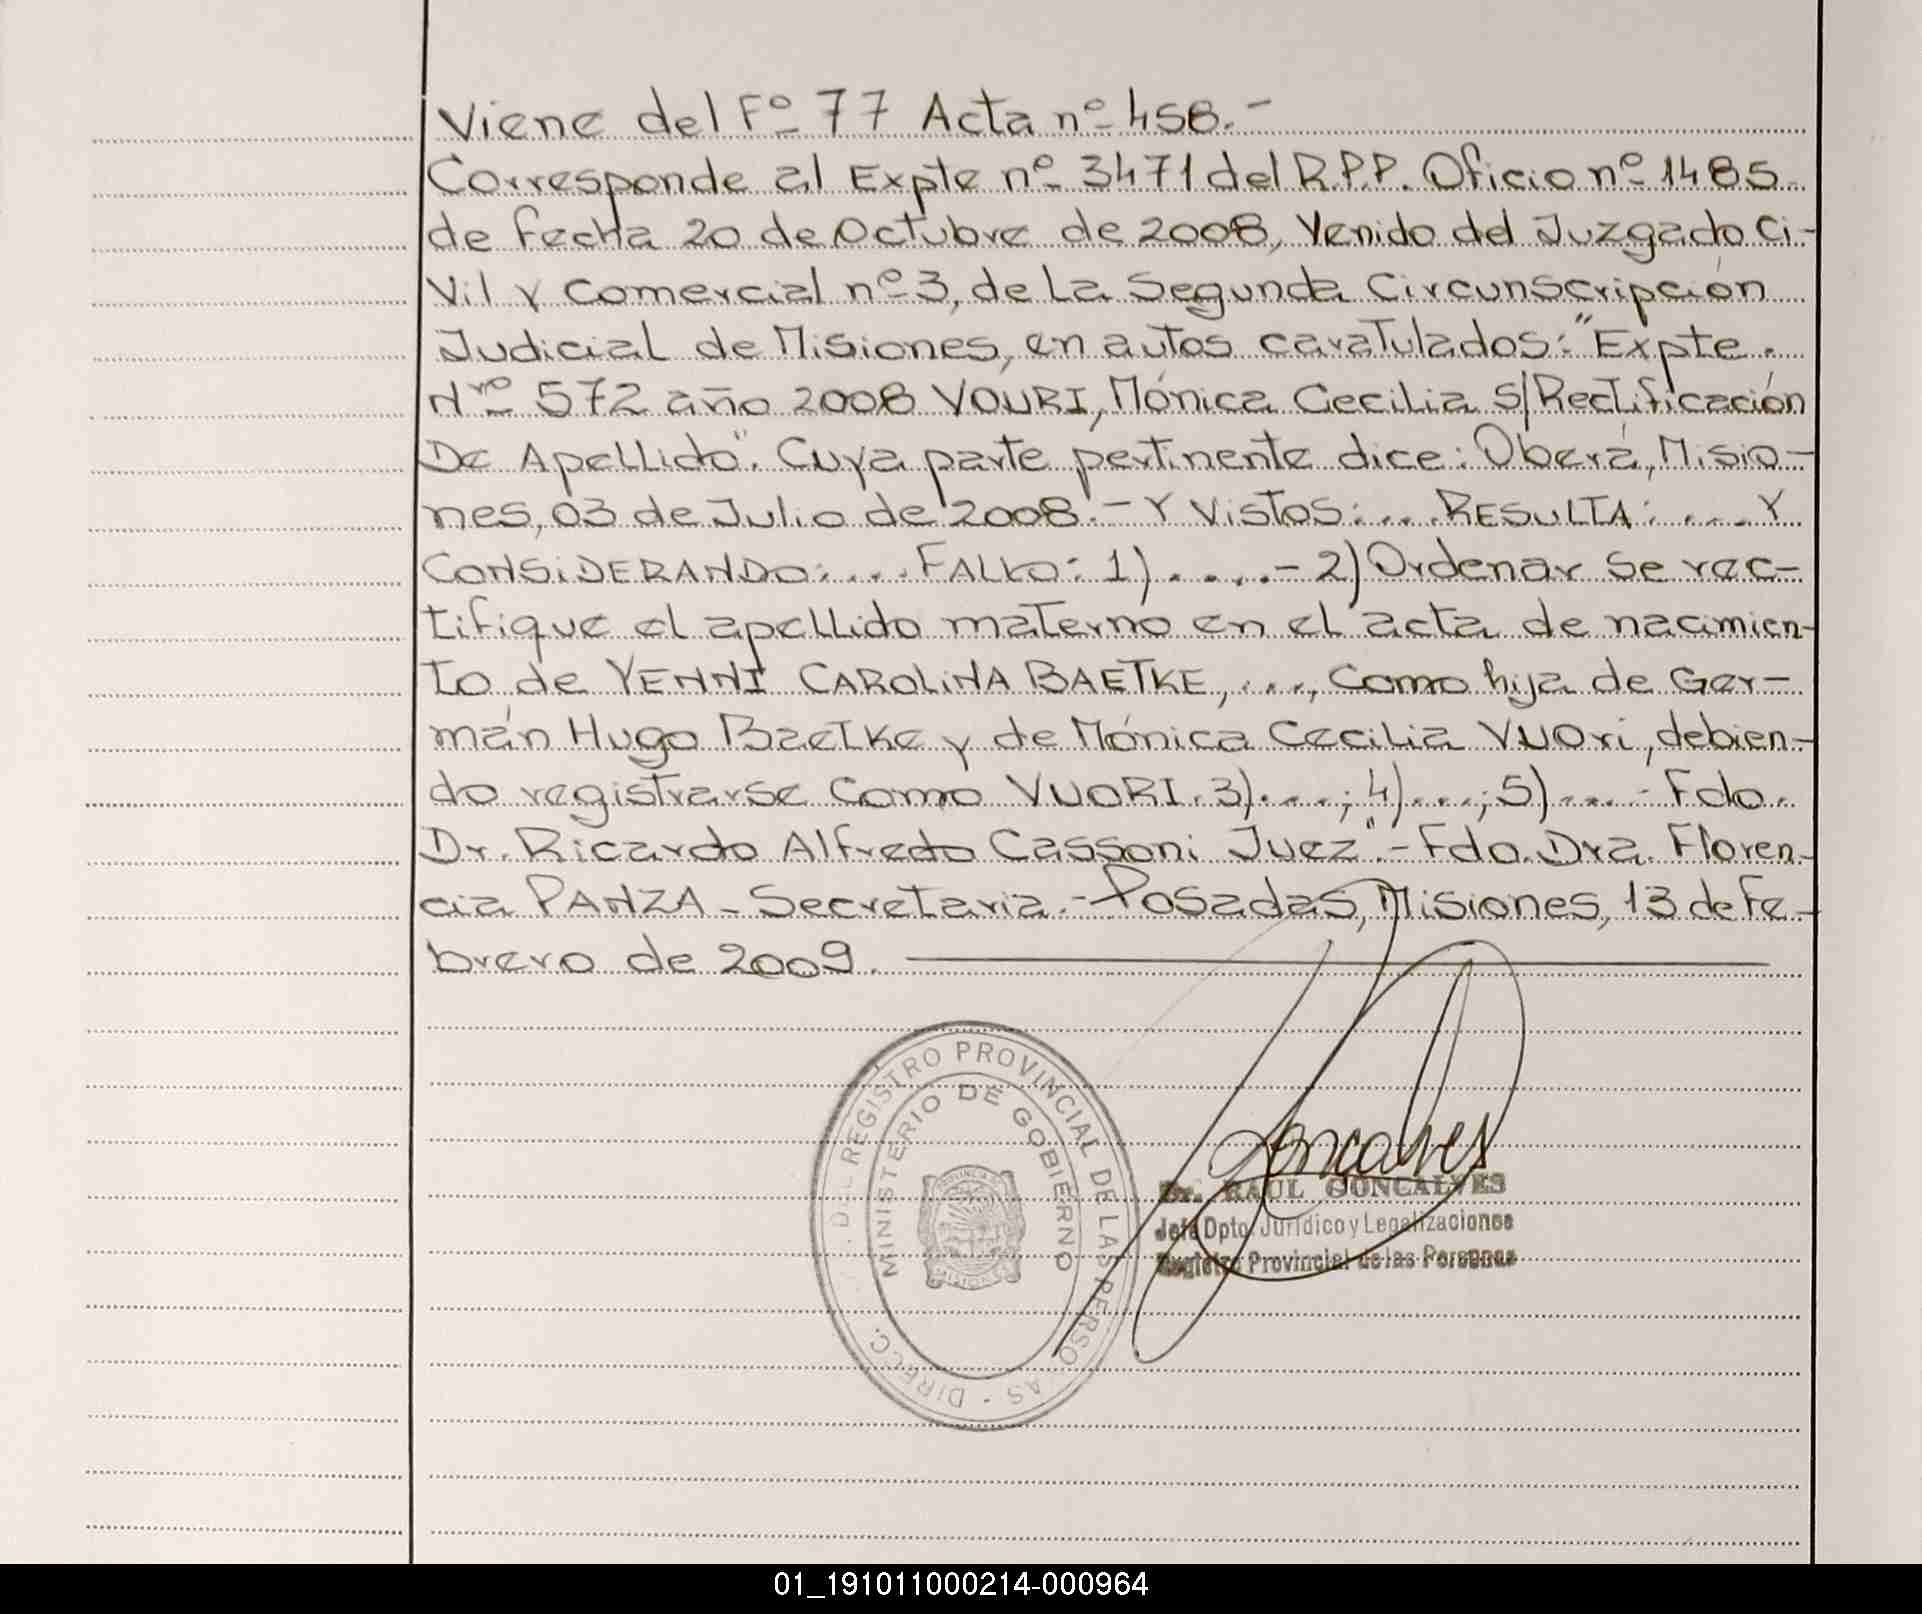 Viene del Fº 77 Acta nº 458.-
Corresponde al Expte nº 3471 del R.P.P. Oficio nº 1485
de fecha 20 de Octubre de 2008, Venido del Juzgado Ci-
vil y Comercial nº 3, de La Segunda Circunscripción
Judicial de Misiones, en autos caratulados: "Expte.
Nro 572 año 2008 VOURI, Mónica Cecilia S/Rectificación
De Apellido". Cuya parte pertinente dice: Oberá, Misio-
nes, 03 de Julio de 2008.- Y Vistos:....RESULTA:.....Y
CONSIDERANDO:....FALLO: 1).....- 2) Ordenar se rec-
tifique el apellido materno en el acta de nacimien-
to de YENNI CAROLINA BAETKE,...., Como hija de Ger-
mán Hugo Baetke y de Mónica Cecilia VUOri, debien-
do registrarse Como VUORI. 3)....; 4)....; 5)....- Fdo.
Dr. Ricardo Alfredo Cassoni Juez".- Fdo. Dra. Floren-
cia PANZA - Secretaria.- Posadas, Misiones, 13 de Fe-
brero de 2009.
DIRECC. DEL REGISTRO PROVINCIAL DE LAS PERSONAS -
MINISTERIO DE GOBIERNO
PROVINCIA
MISIONES
Goncalves
Dr. RAUL GONCALVES
Jefe Dpto. Jurídico y Legalizaciones
Registro Provincial de las Personas
01_191011000214-000964